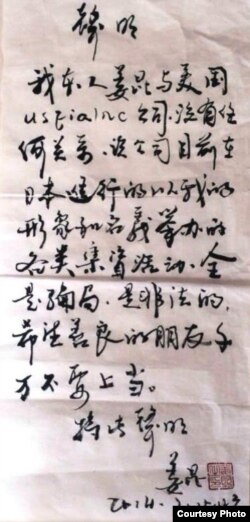 聲明
我本人姜昆与美国
usfia inc 公司,没有任
何关系,该公司目前在
日本進行的以我的
形象和名義举办的
各类集資活动,全
是骗局,是非法的,
希望善良的朋友千
万不要上当。
特此聲明
姜昆
2014.
Courtesy Photo